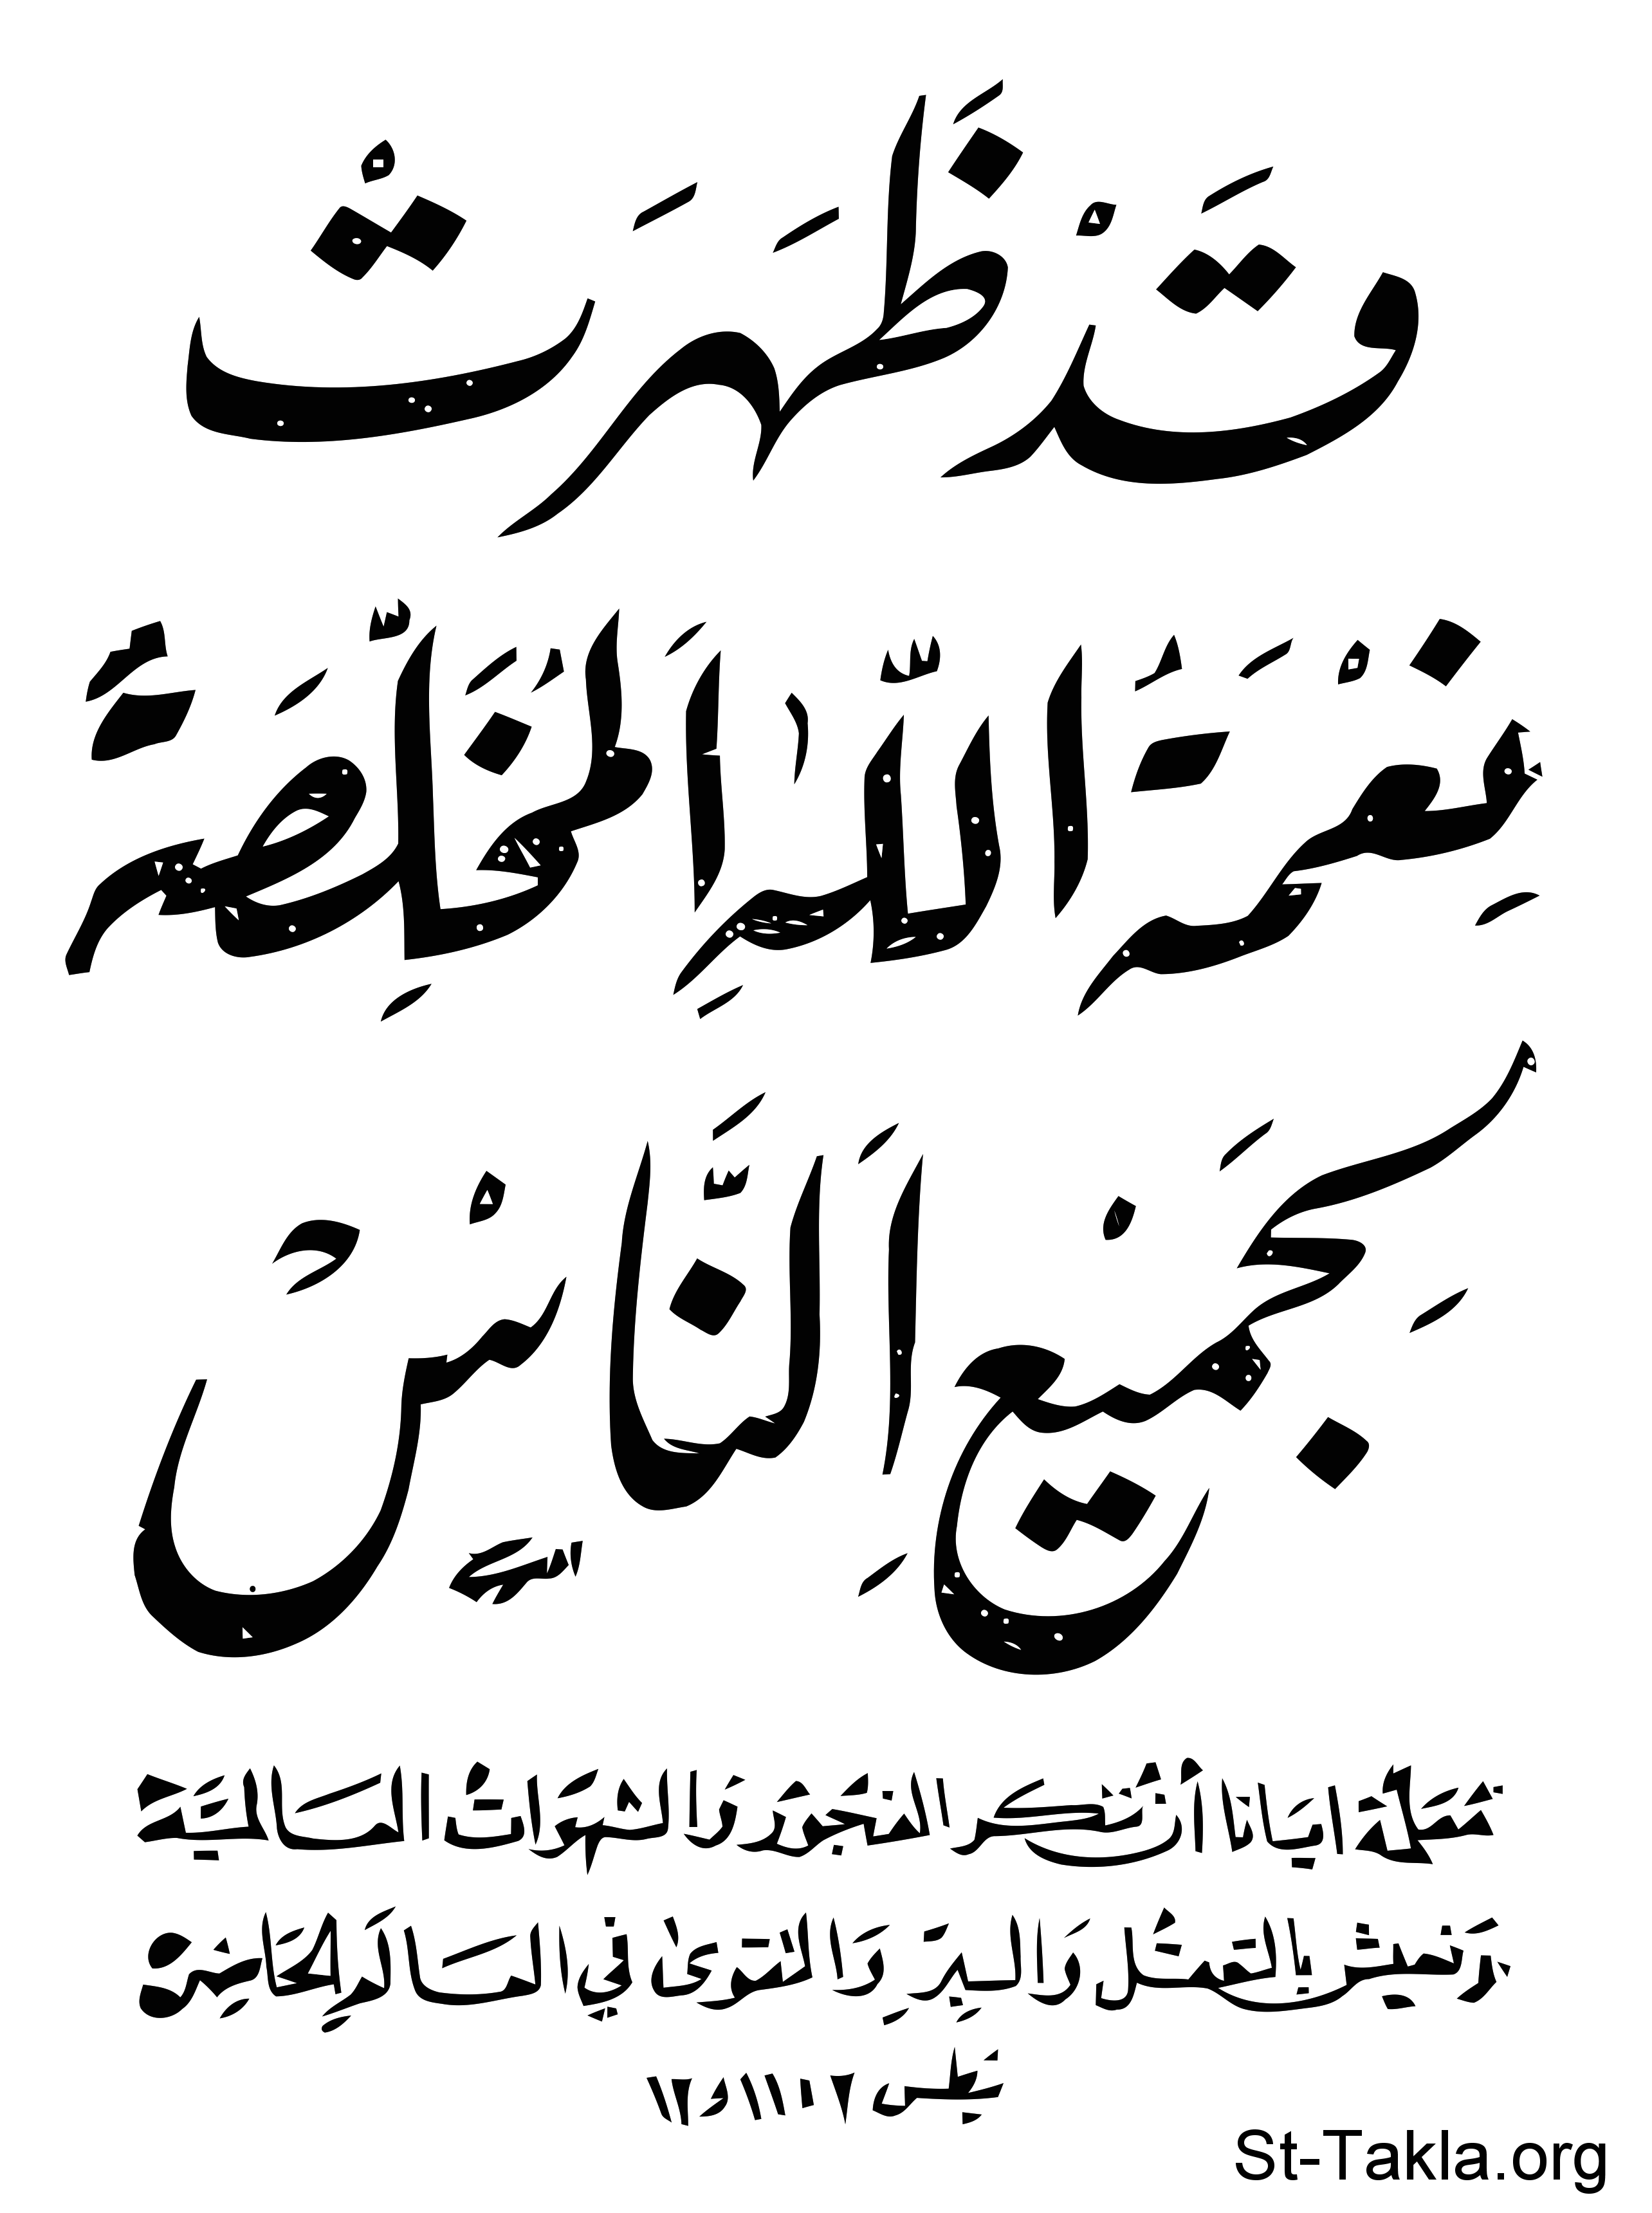 قَدْ ظَهَرَتْ
نِعْمَةُ اللّٰهِ المُخَلِّصَةُ
لِجَمِيْعِ النَّاسْ
مُعَلِّمَةً إيانا أن ننكر الفجور والشهوات العالمية
ونعيش بالتعقل والبر والتقوى في العالم الحاضر
تيطس ٢ : ١١ و ١٢
St-Takla.org